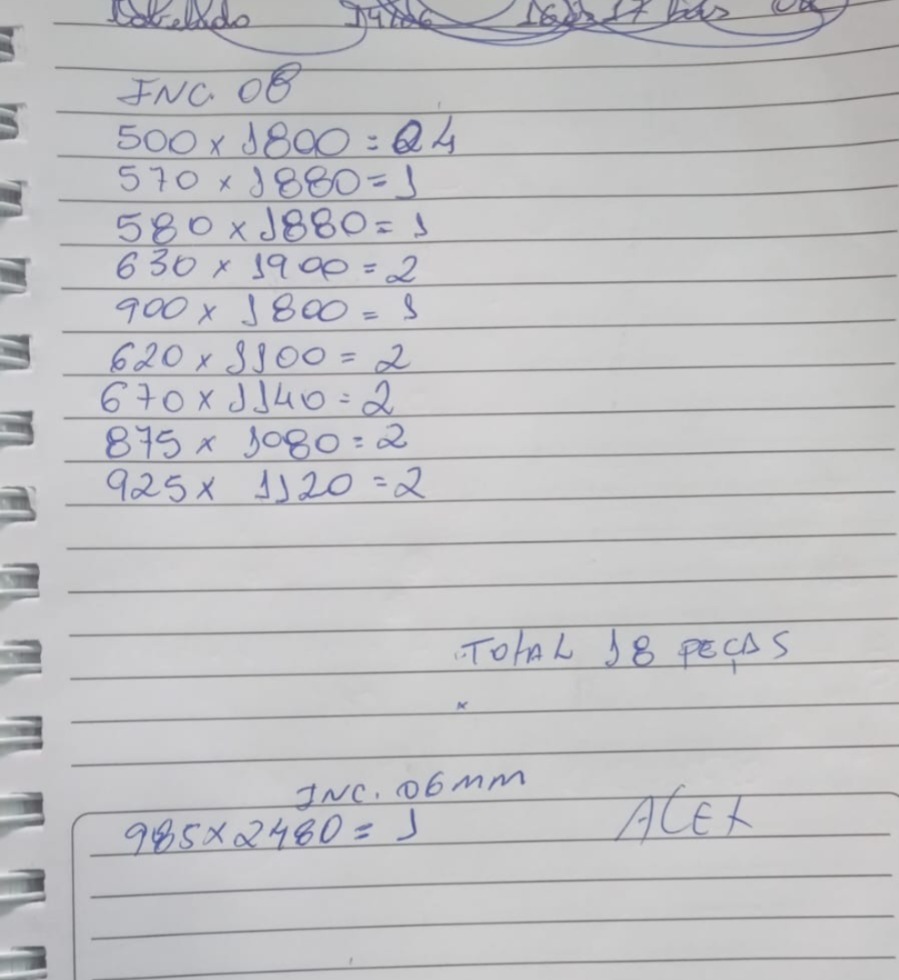 INC. 08
500 x 1800 = 4
570 x 1880 = 1
580 x 1880 = 1
630 x 1900 = 2
900 x 1800 = 1
620 x 1100 = 2
670 x 1140 = 2
875 x 1080 = 2
925 x 1120 = 2
TOTAL 18 PEÇAS
x
INC. 06mm
985 x 2480 = 1